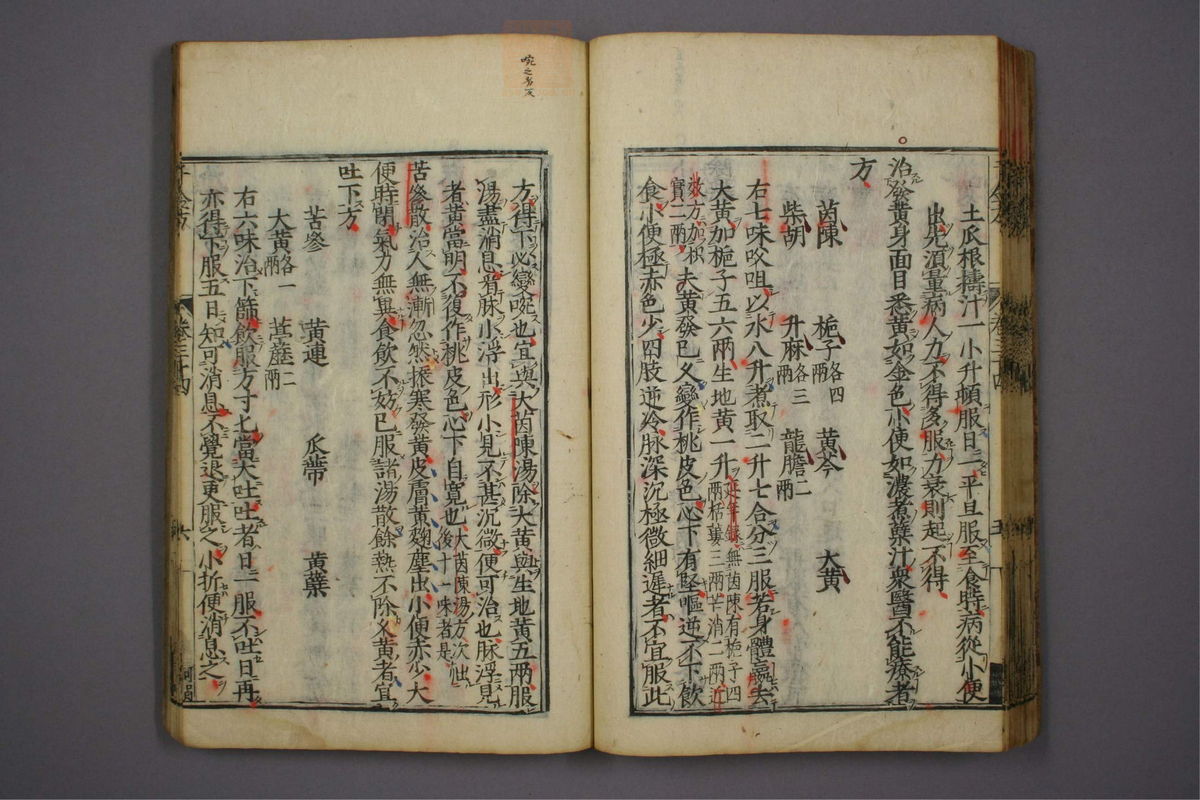 土瓜根擣汁一小升頓服日一平旦服至食時病從小便
出先須量病人力不得多服力衰則起不得
治發黃身面目悉黃如金色小便如濃煮蘗汁衆醫不能療者
方
茵陳 梔子各四兩 黃芩 大黃
柴胡 升麻各三兩 龍膽二兩
右七味㕮咀以水八升煮取二升七合分三服若身體羸去
大黃加梔子五六兩生地黃一升延年錄無茵陳有梔子四兩栝蔞三兩芒消二兩近
效方加枳實二兩夫黃發已久變作桃皮色心下有堅嘔逆不下飲
食小便極赤色少四肢逆冷脉深沉極微細遲者不宜服此
方得下必變哕也宜與大茵陳湯除大黃與生地黃五兩服
湯盡消息看脉小浮出形小見不甚沉微便可治也脉浮見
者黃當明不復作桃皮色心下自寬也大茵陳湯方次後十一味者是
苦參散治人無漸忽然振寒發黃皮膚黃麴塵出小便赤少大
便時閉氣力無異食飲不妨已服諸湯散餘熱不除久黃者宜
吐下方
苦參 黃連 瓜蔕 黃蘗
大黃各一兩 葶藶二兩
右六味治下篩飲服方寸匕當大吐吐者日一服不吐日再
亦得下服五日知可消息不覺退更服之小折便消息之
卷三十四
五
卷三十四
六